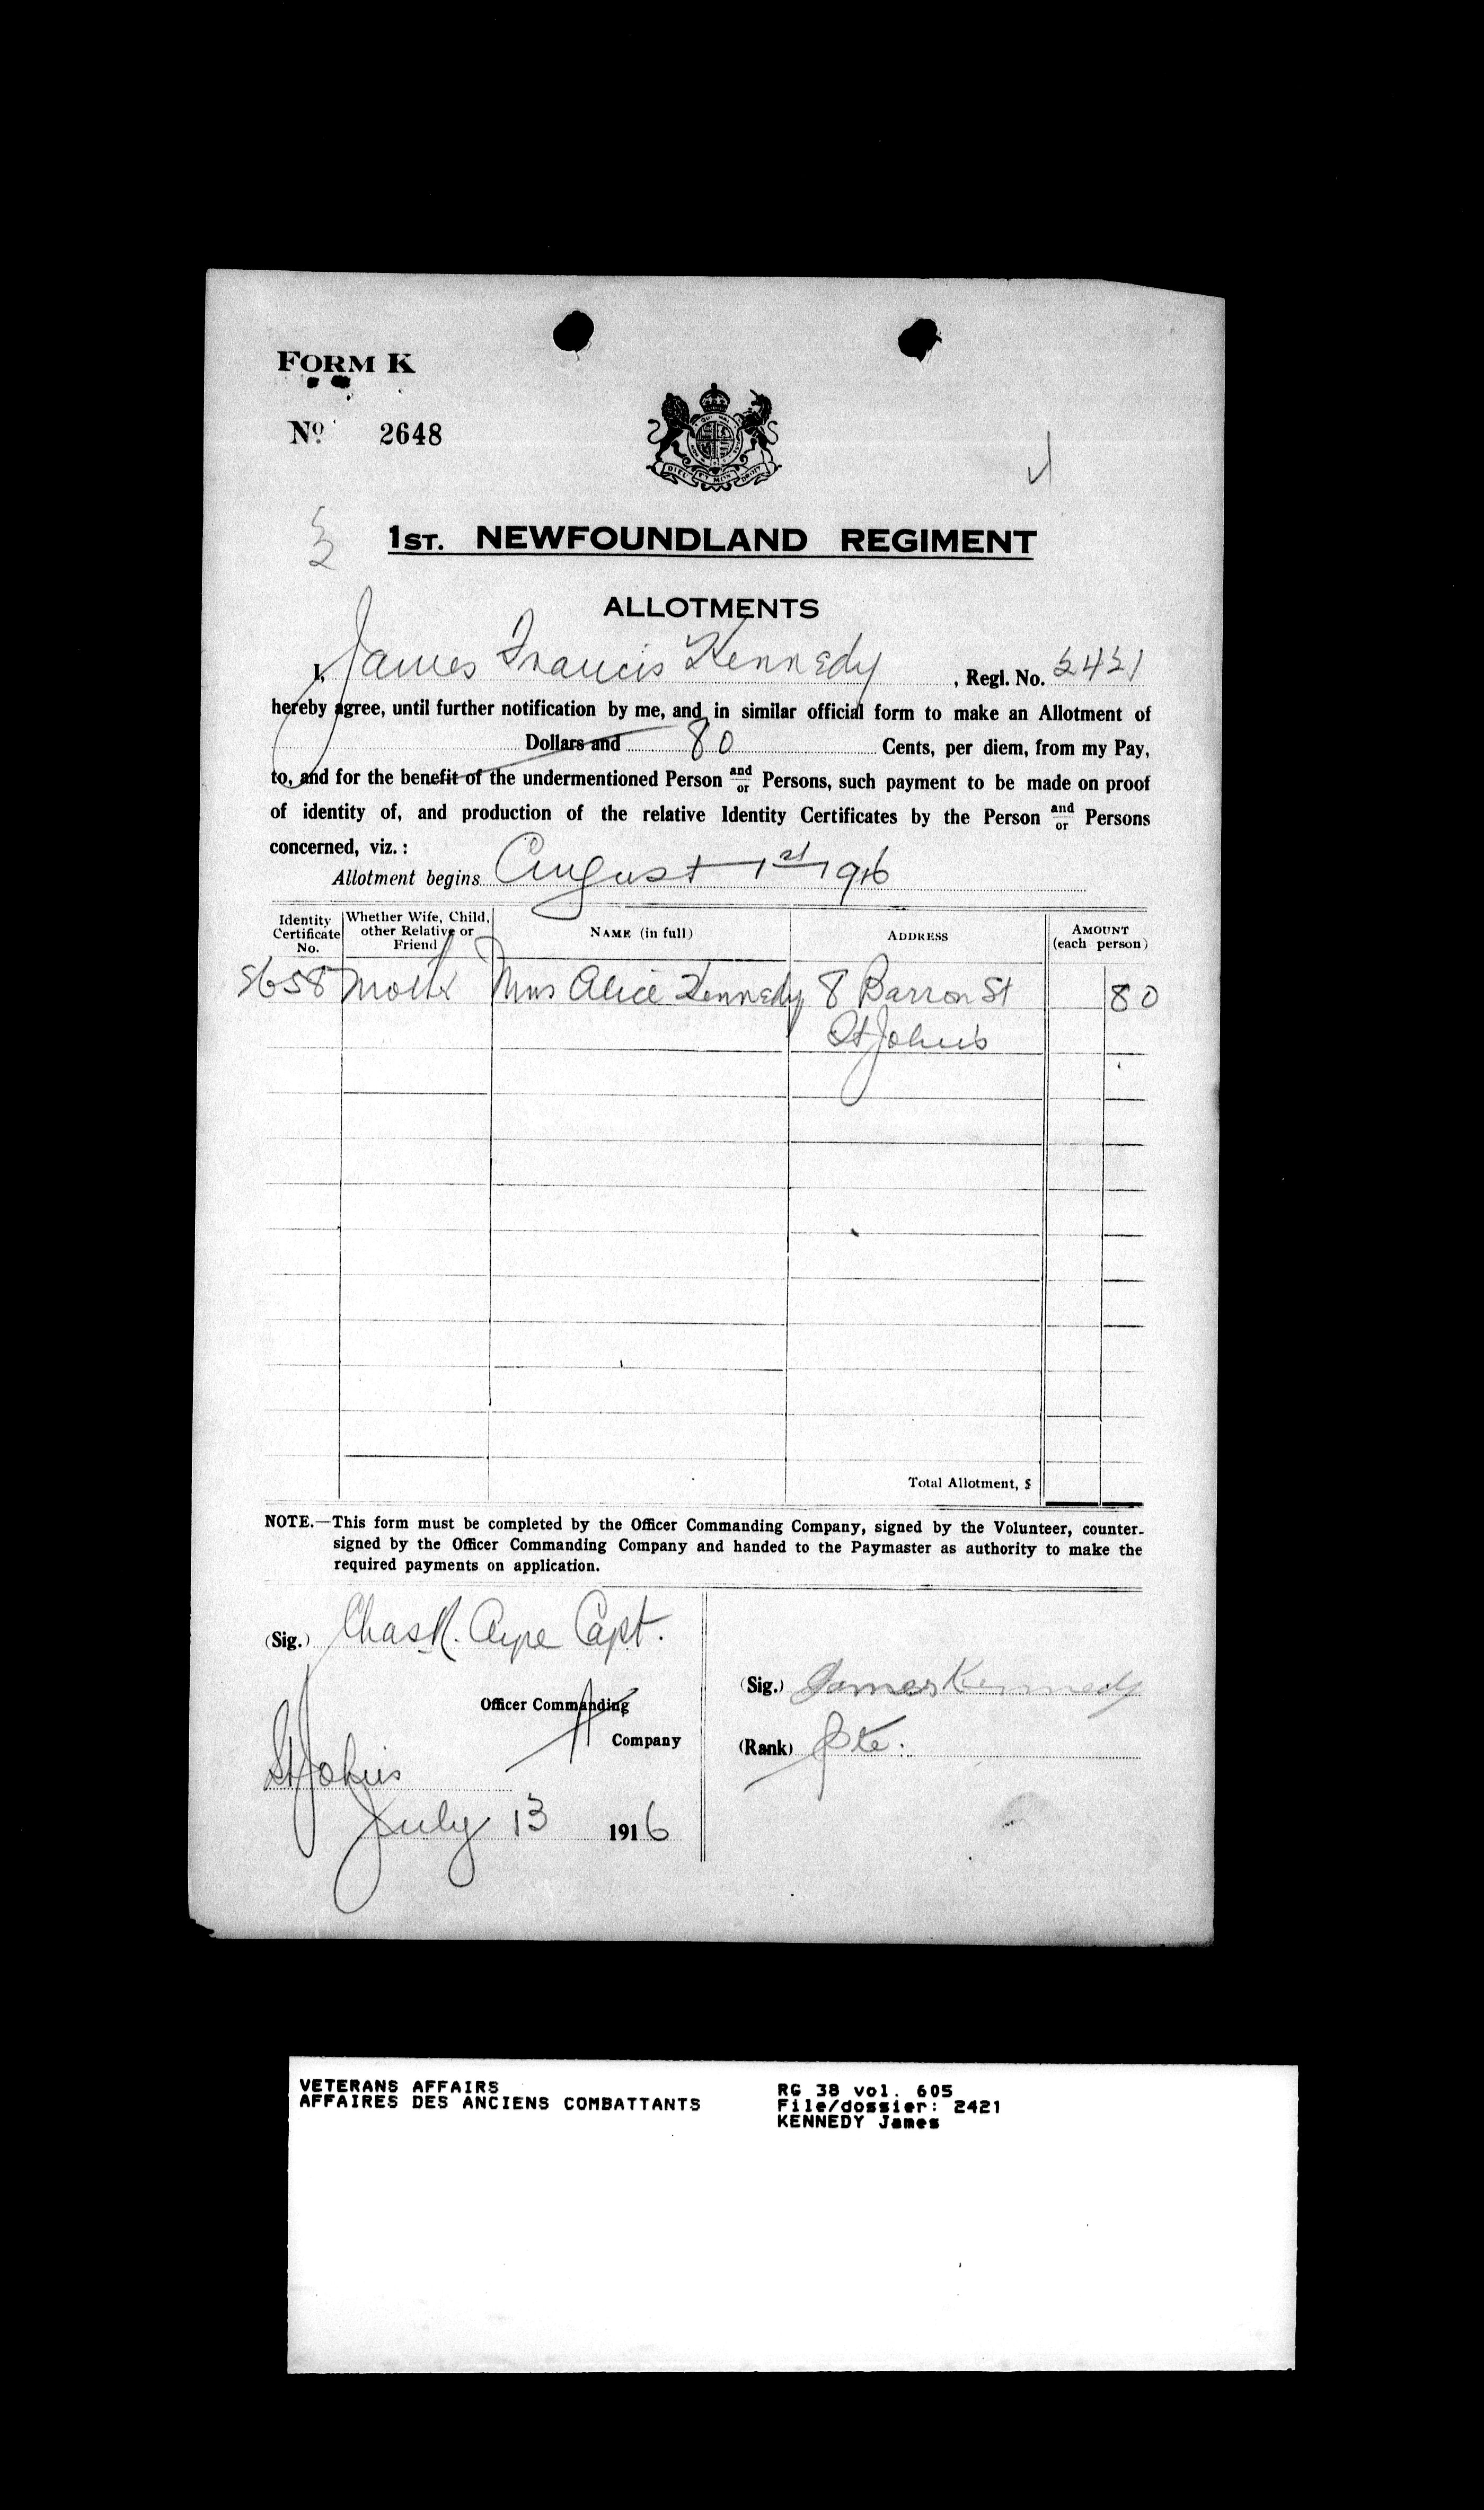 FORM K
No. 2648
1ST. NEWFOUNDLAND REGIMENT
ALLOTMENTS
I, James Francis Kennedy, Regl. No. 2421
hereby agree, until further notification by me, and in similar official form to make an Allotment of
Dollars and 80 Cents, per diem, from my Pay,
to, and for the benefit of the undermentioned Person and/or Persons, such payment to be made on proof
of identity of, and production of the relative Identity Certificates by the Person and/or Persons
concerned, viz.:
Allotment begins August 1st 1916
Identity Certificate No. Whether Wife, Child, other Relative or Friend NAME (in full) ADDRESS AMOUNT (each person)
Mother Mrs Alice Kennedy 8 Barron St 80
St John's
Total Allotment, $
NOTE.—This form must be completed by the Officer Commanding Company, signed by the Volunteer, counter-
signed by the Officer Commanding Company and handed to the Paymaster as authority to make the
required payments on application.
(Sig.) Chas R. Ayre Capt.
Officer Commanding
Company
(Sig.) James Kennedy
(Rank) Pte.
St John's
July 13 1916
VETERANS AFFAIRS
AFFAIRES DES ANCIENS COMBATTANTS
RG 38 vol. 605
File/dossier: 2421
KENNEDY James